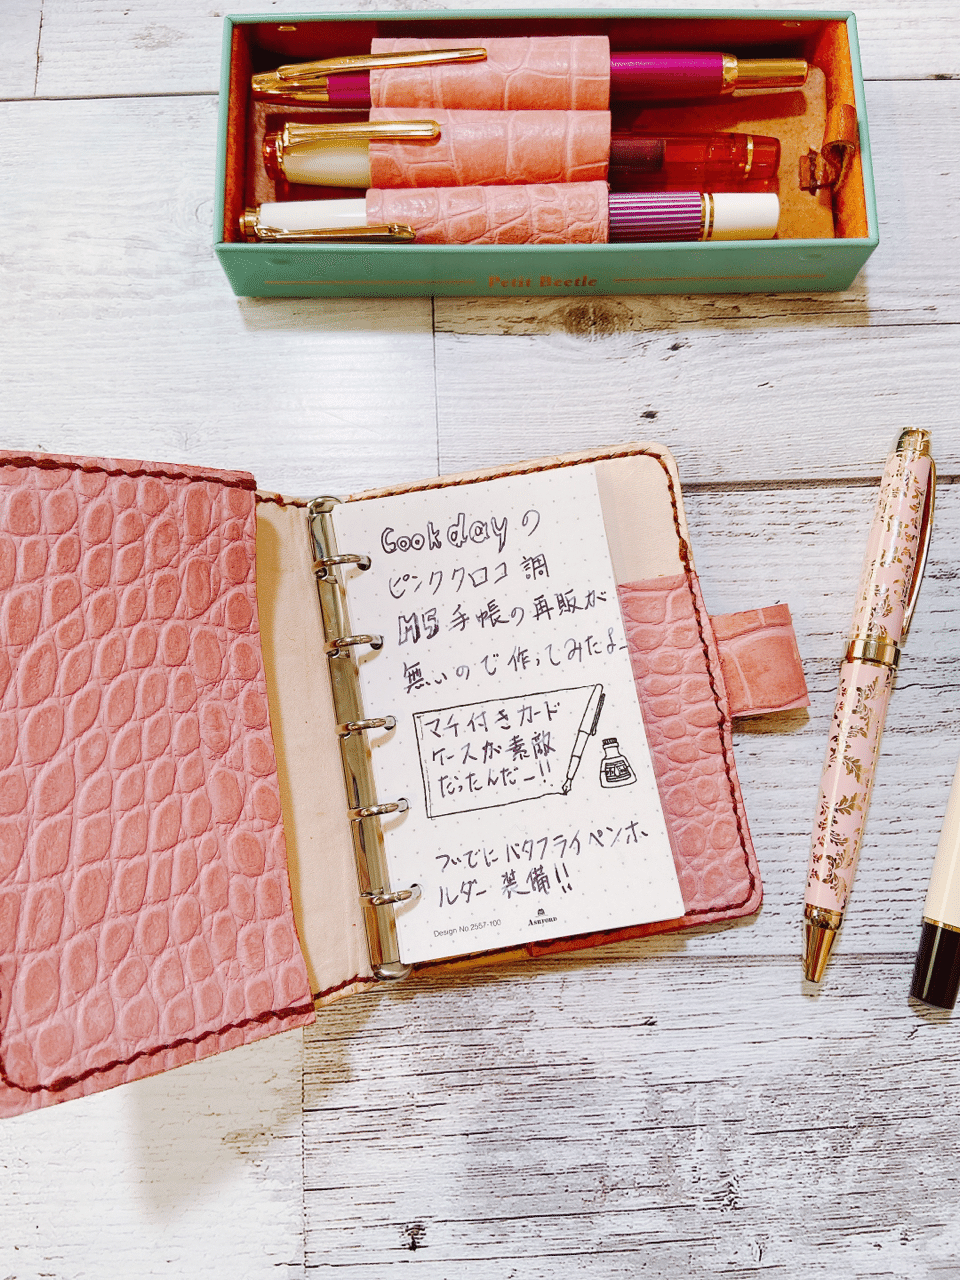 Petit Beetle
Cookdayの
ピンククロコ調
M5手帳の再販が
無いので作ってみたよー
マチ付きカード
ケースが素敵
だったんだー!!
ついでにバタフライペンホ
ルダー装備!!
Design No.2557-100
ASHFORD